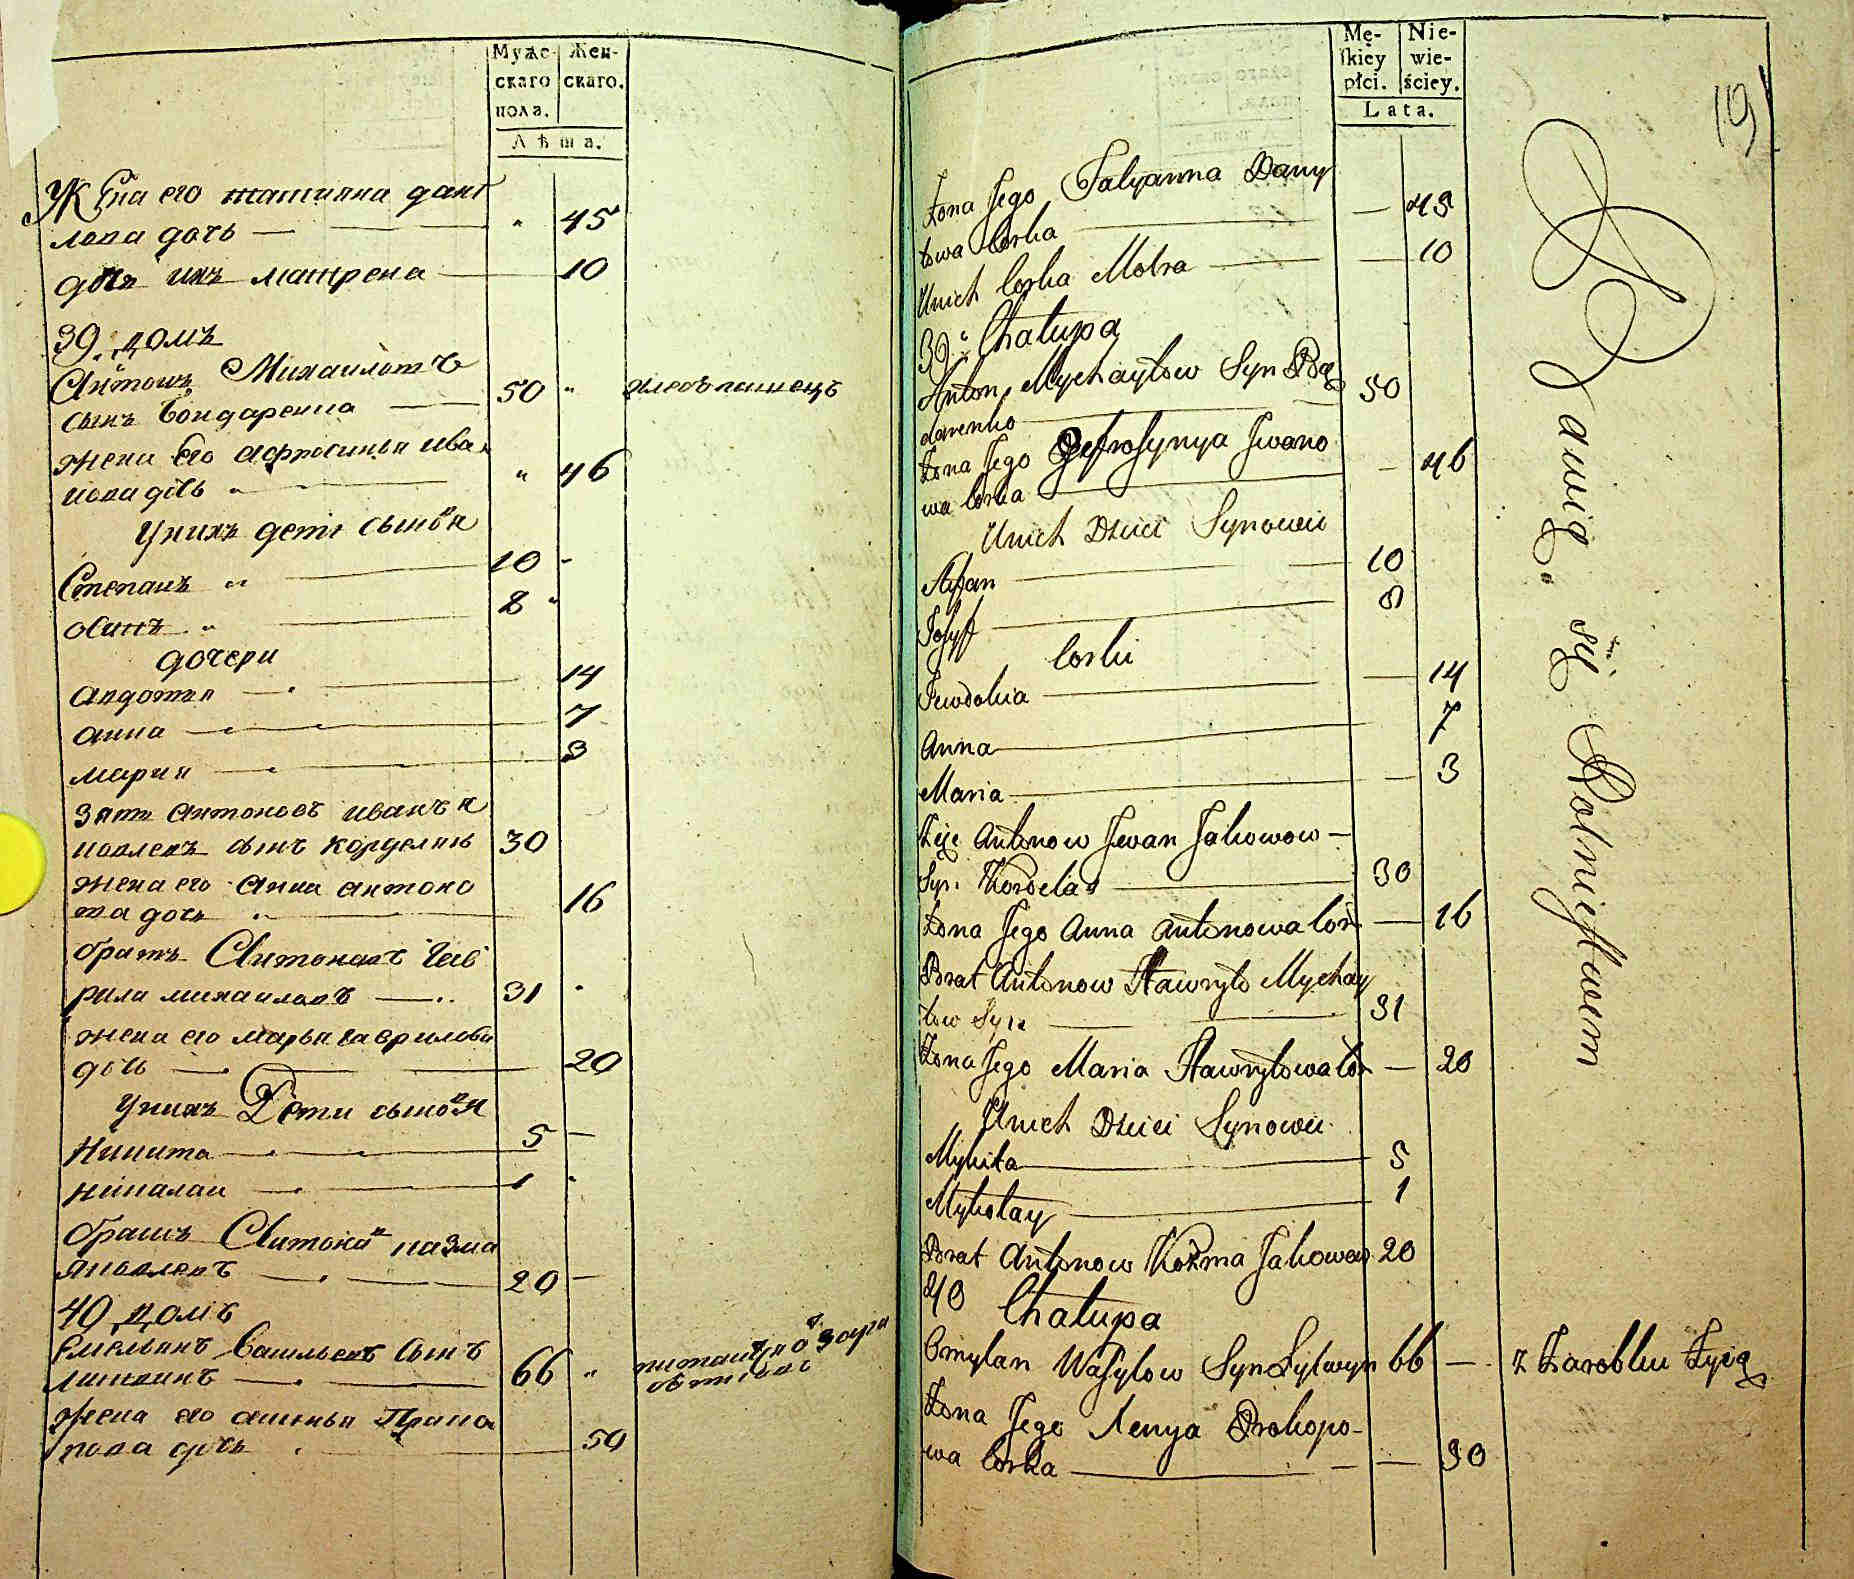 Муже-
скаго
пола.
Жен-
скаго.
Лѣта.
Жена его татияна дани
лова дочь — " 45
дочь ихъ матрена — 10
39. домъ
Антонъ Михаиловъ
сынъ бондаренко — 50 " хлебопашецъ
жена его афросинья ива
нова дочь " — " 46
у нихъ дети сыновя
Степанъ " — 10 -
осипъ " — 8 "
дочери
авдотья — 14
анна — 7
мария — 3
зять антоновъ иванъ я
ковлевъ сынъ корделясъ 30
жена его анна антоно
ва дочь " — 16
братъ Антоновъ гав
рила михаиловъ — 31 "
жена его марья гаврилова
дочь — 20
у нихъ Дети сыновя
Никита — 5 —
николаи — 1 "
братъ Антонов козма
яковлевъ — 20 —
40 домъ
Емельянъ Васильевъ Сынъ
литвинъ — 66 "
Жена его аксинья Проко
пова дочь — 50
19
Mę-
ſkiey
płci.
Nie-
wie-
ściey.
Lata.
Żona Jego Tatyanna Dany
łowa Corka — — 45
Unich Corka Motra — — 10
39. Chałupa
Anton Mychayłow Syn Bą
darenko — 50
Żona Jego Jefroſynya Jwano
wa Corka — — 46
Unich Dzieci Synowie
Stefan — 10
Joſyf — 8
Corki
Jewdokia — — 14
Anna — 7
Maria — — 3
Zięć Antonow Jwan Jakowow —
Syn Kordelas — 30
Żona Jego Anna Antonowa Cor — 16
Brat Antonow Hawryło Mychay
łow Syn — 31
Żona Jego Maria Hawryłowa Cor — 20
Unich Dzieci Synowie
Mykita — 5
Mykołay — 1
Brat Antonow Kozma Jakowow 20
40 Chałupa
Omylan Waſylow Syn Lytwyn 66 — z Zarobku Żyią
Żona Jego Xenya Prokopo-
wa Corka — — 50
Bawią. się Rolnictwem